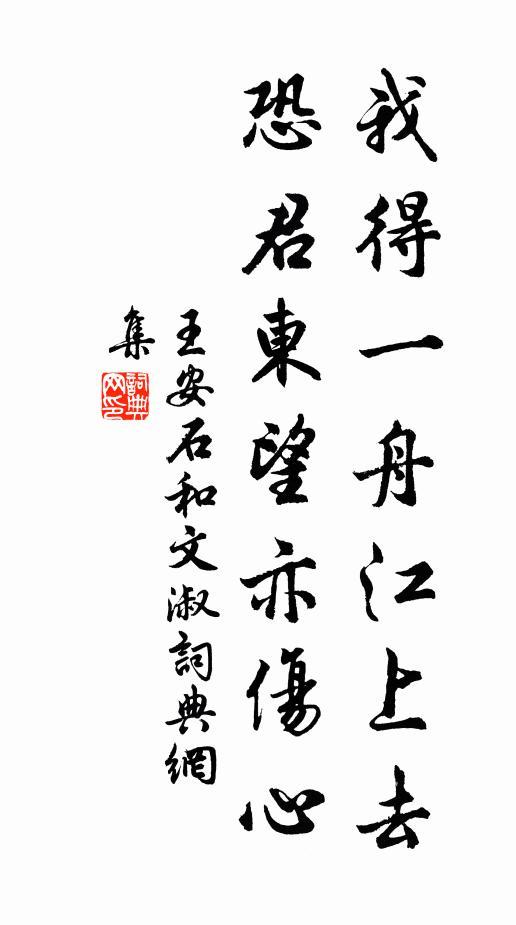 我得一舟江上去
恐君東望亦傷心
王安石和文淑詞典網
集
詞典網印